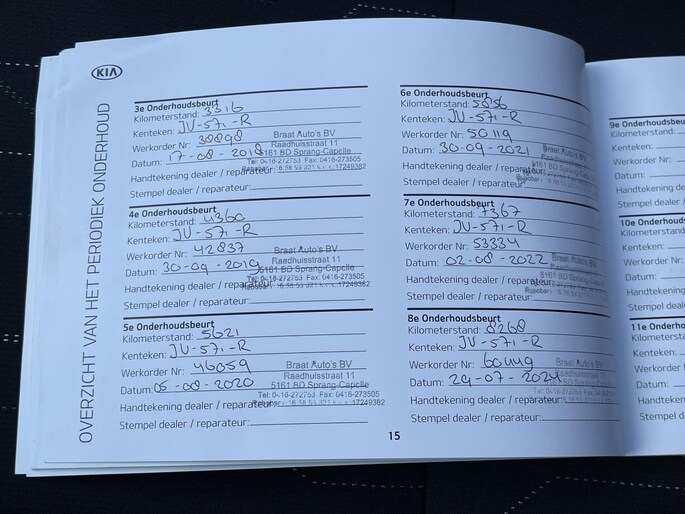 KIA
OVERZICHT VAN HET PERIODIEK ONDERHOUD
3e Onderhoudsbeurt
Kilometerstand: 3316
Kenteken: JV-571-R
Werkorder Nr: 30898
Braat Auto's BV
Raadhuisstraat 11
Datum: 17-08-2018
5161 BD Sprang-Capelle
Tel: 0416-272753 Fax: 0416-273505
Handtekening dealer / reparateur:
Stempel dealer / reparateur:
4e Onderhoudsbeurt
Kilometerstand: 4360
Kenteken: JV-571-R
Werkorder Nr: 42837
Braat Auto's BV
Raadhuisstraat 11
Datum: 30-09-2019
5161 BD Sprang-Capelle
Tel: 0416-272753 Fax: 0416-273505
Handtekening dealer / reparateur:
Stempel dealer / reparateur:
5e Onderhoudsbeurt
Kilometerstand: 5621
Kenteken: JV-571-R
Werkorder Nr: 46059
Braat Auto's BV
Raadhuisstraat 11
Datum: 05-08-2020
5161 BD Sprang-Capelle
Tel: 0416-272753 Fax: 0416-273505
Handtekening dealer / reparateur:
Stempel dealer / reparateur:
6e Onderhoudsbeurt
Kilometerstand:
Kenteken: JV-571-R
Werkorder Nr: 50119
Braat Auto's BV
Raadhuisstraat 11
Datum: 30-09-2021
5161 BD Sprang-Capelle
Handtekening dealer / reparateur:
Stempel dealer / reparateur:
7e Onderhoudsbeurt
Kilometerstand: 7367
Kenteken: JV-571-R
Werkorder Nr: 53334
Braat Auto's BV
Raadhuisstraat 11
Datum: 02-08-2022
5161 BD Sprang-Capelle
Handtekening dealer / reparateur:
Stempel dealer / reparateur:
8e Onderhoudsbeurt
Kilometerstand: 8268
Kenteken: JV-571-R
Werkorder Nr:
Braat Auto's BV
Raadhuisstraat 11
Datum: 24-07-2024
5161 BD Sprang-Capelle
Handtekening dealer / reparateur:
Stempel dealer / reparateur:
15
9e Onderhoudsb
Kilometerstand:
Kenteken:
Werkorder Nr:
Datum:
Handtekening de
Stempel dealer /
10e Onderhouds
Kilometerstand
Kenteken:
Werkorder Nr
Datum:
Handtekening
Stempel deal
11e Onderho
Kilometersta
Kenteken:
Werkorder
Datum:
Handteken
Stempel d